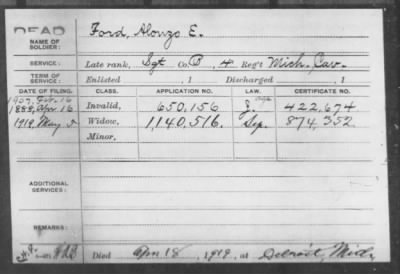 DEAD
NAME OF SOLDIER: Ford, Alonzo E.
SERVICE: Late rank, Sgt Co. B, 4 Reg't Mich. Cav.
TERM OF SERVICE: Enlisted , 1 Discharged , 1
DATE OF FILING. CLASS. APPLICATION NO. LAW. CERTIFICATE NO.
1907, Feb. 16
1888, Apr 16 Invalid, 650,156 J. 422,674
1919, May Widow, 1,140,516. Sep. 874,352
Minor.
ADDITIONAL SERVICES:
REMARKS:
Died Apr 18, 1919, at Detroit Mich.